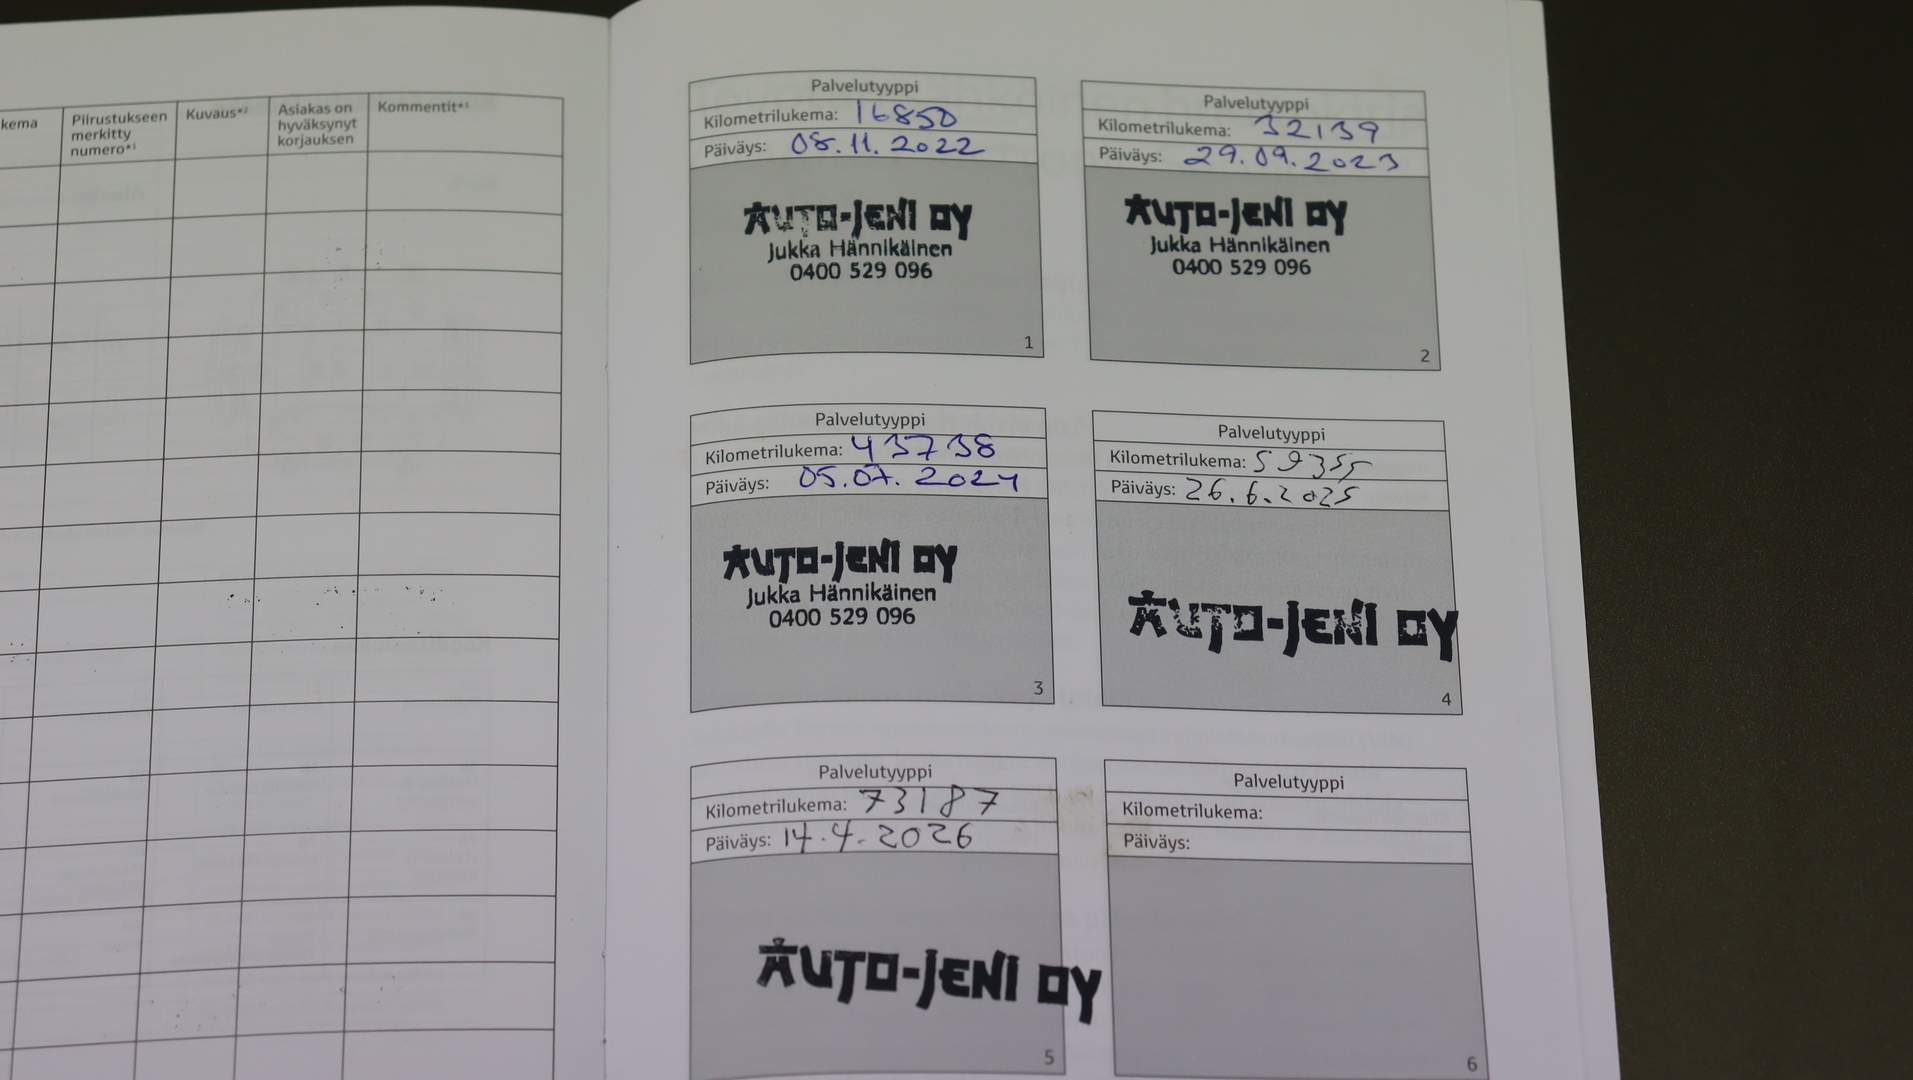 kema
Piirustukseen
merkitty
numero*¹
Kuvaus*²
Asiakas on
hyväksynyt
korjauksen
Kommentit*³
Palvelutyyppi
Kilometrilukema: 16850
Päiväys: 08.11.2022
AUTO-JENI OY
Jukka Hännikäinen
0400 529 096
1
Palvelutyyppi
Kilometrilukema: 32139
Päiväys: 29.09.2023
AUTO-JENI OY
Jukka Hännikäinen
0400 529 096
2
Palvelutyyppi
Kilometrilukema: 43738
Päiväys: 05.07.2024
AUTO-JENI OY
Jukka Hännikäinen
0400 529 096
3
Palvelutyyppi
Kilometrilukema: 59355
Päiväys: 26.6.2025
AUTO-JENI OY
4
Palvelutyyppi
Kilometrilukema: 73187
Päiväys: 14.4.2026
AUTO-JENI OY
5
Palvelutyyppi
Kilometrilukema:
Päiväys:
6